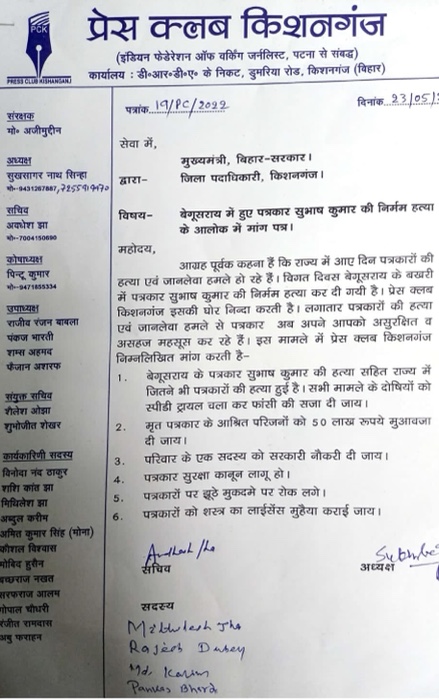 PCK
PRESS CLUB KISHANGANJ
प्रेस क्लब किशनगंज
(इंडियन फेडरेशन ऑफ वर्किंग जर्नलिस्ट, पटना से संबद्ध)
कार्यालय : डी०आर०डी०ए० के निकट, डुमरिया रोड, किशनगंज (बिहार)
पत्रांक 19/PC/2022
दिनांक 23/05/
संरक्षक
मो० अजीमुद्दीन
अध्यक्ष
सुखसागर नाथ सिन्हा
सचिव
अवधेश झा
मो०-7004150690
कोषाध्यक्ष
पिन्टू कुमार
मो०-9471855334
उपाध्यक्ष
राजीव रंजन बाबला
पंकज भारती
शम्स अहमद
फैजान अशरफ
संयुक्त सचिव
शैलेश ओझा
शुभोजीत शेखर
कार्यकारिणी सदस्य
विनोदा नंद ठाकुर
शशि कांत झा
मिथिलेश झा
अब्दुल करीम
अमित कुमार सिंह (मोना)
कौशल विश्वास
गोविद हुसैन
बच्छराज नखत
सरफराज आलम
गोपाल चौधरी
रंजीत रामदास
अबु फराहन
सेवा में,
मुख्यमंत्री, बिहार-सरकार।
द्वारा- जिला पदाधिकारी, किशनगंज।
विषय- बेगूसराय में हुए पत्रकार सुभाष कुमार की निर्मम हत्या
के आलोक में मांग पत्र।
महोदय,
आग्रह पूर्वक कहना हैं कि राज्य में आए दिन पत्रकारों की
हत्या एवं जानलेवा हमले हो रहे हैं। विगत दिवस बेगूसराय के बखरी
में पत्रकार सुभाष कुमार की निर्मम हत्या कर दी गयी है। प्रेस क्लब
किशनगंज इसकी घोर निन्दा करती है। लगातार पत्रकारों की हत्या
एवं जानलेवा हमले से पत्रकार अब अपने आपको असुरक्षित व
असहज महसूस कर रहे हैं। इस मामले में प्रेस क्लब किशनगंज
निम्नलिखित मांग करती है-
1. बेगूसराय के पत्रकार सुभाष कुमार की हत्या सहित राज्य में
जितने भी पत्रकारों की हत्या हुई है। सभी मामले के दोषियों को
स्पीडी ट्रायल चला कर फांसी की सजा दी जाय।
2. मृत पत्रकार के आश्रित परिजनों को 50 लाख रूपये मुआवजा
दी जाय।
3. परिवार के एक सदस्य को सरकारी नौकरी दी जाय।
4. पत्रकार सुरक्षा कानून लागू हो।
5. पत्रकारों पर झूठे मुकदमे पर रोक लगे।
6. पत्रकारों को शस्त्र का लाईसेंस मुहैया कराई जाय।
सचिव
अध्यक्ष
सदस्य
Mithilesh Jha
Rajesh Dubey
Md. Karim